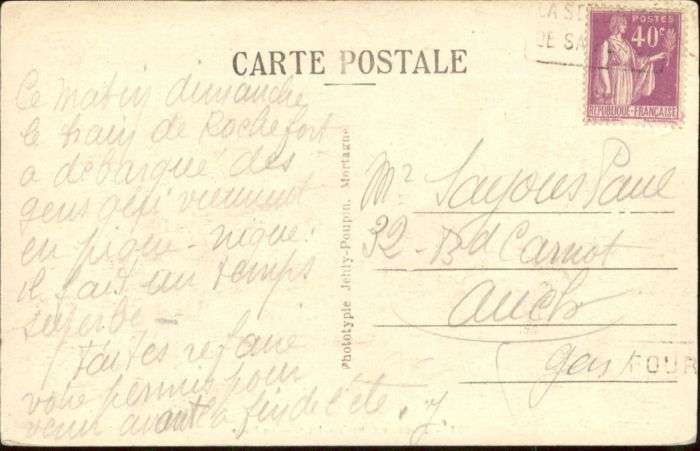 LA ST
DE SA
POSTES
40c
RÉPUBLIQUE-FRANÇAISE
CARTE POSTALE
Ce matin dimanche
le train de Rochefort
a débarqué des
gens qui viennent
en pique-nique.
il fait un temps
superbe -
Faites refaire
votre permis pour
venir avant la fin de l'été. J.
Phototypie Jehly-Poupin, Mortagne
Mr Sayous Paul
32 - Bd Carnot
Auch
Gers
FOUR